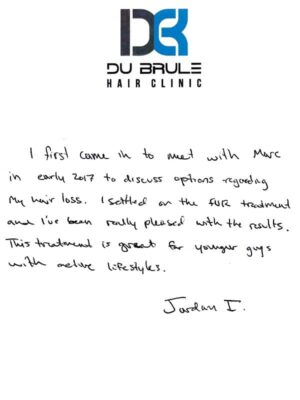 DU BRULE
HAIR CLINIC
I first came in to meet with Marc
in early 2017 to discuss options regarding
my hair loss. I settled on the FUR treatment
and I've been really pleased with the results.
This treatment is great for younger guys
with active lifestyles.
Jordan I.